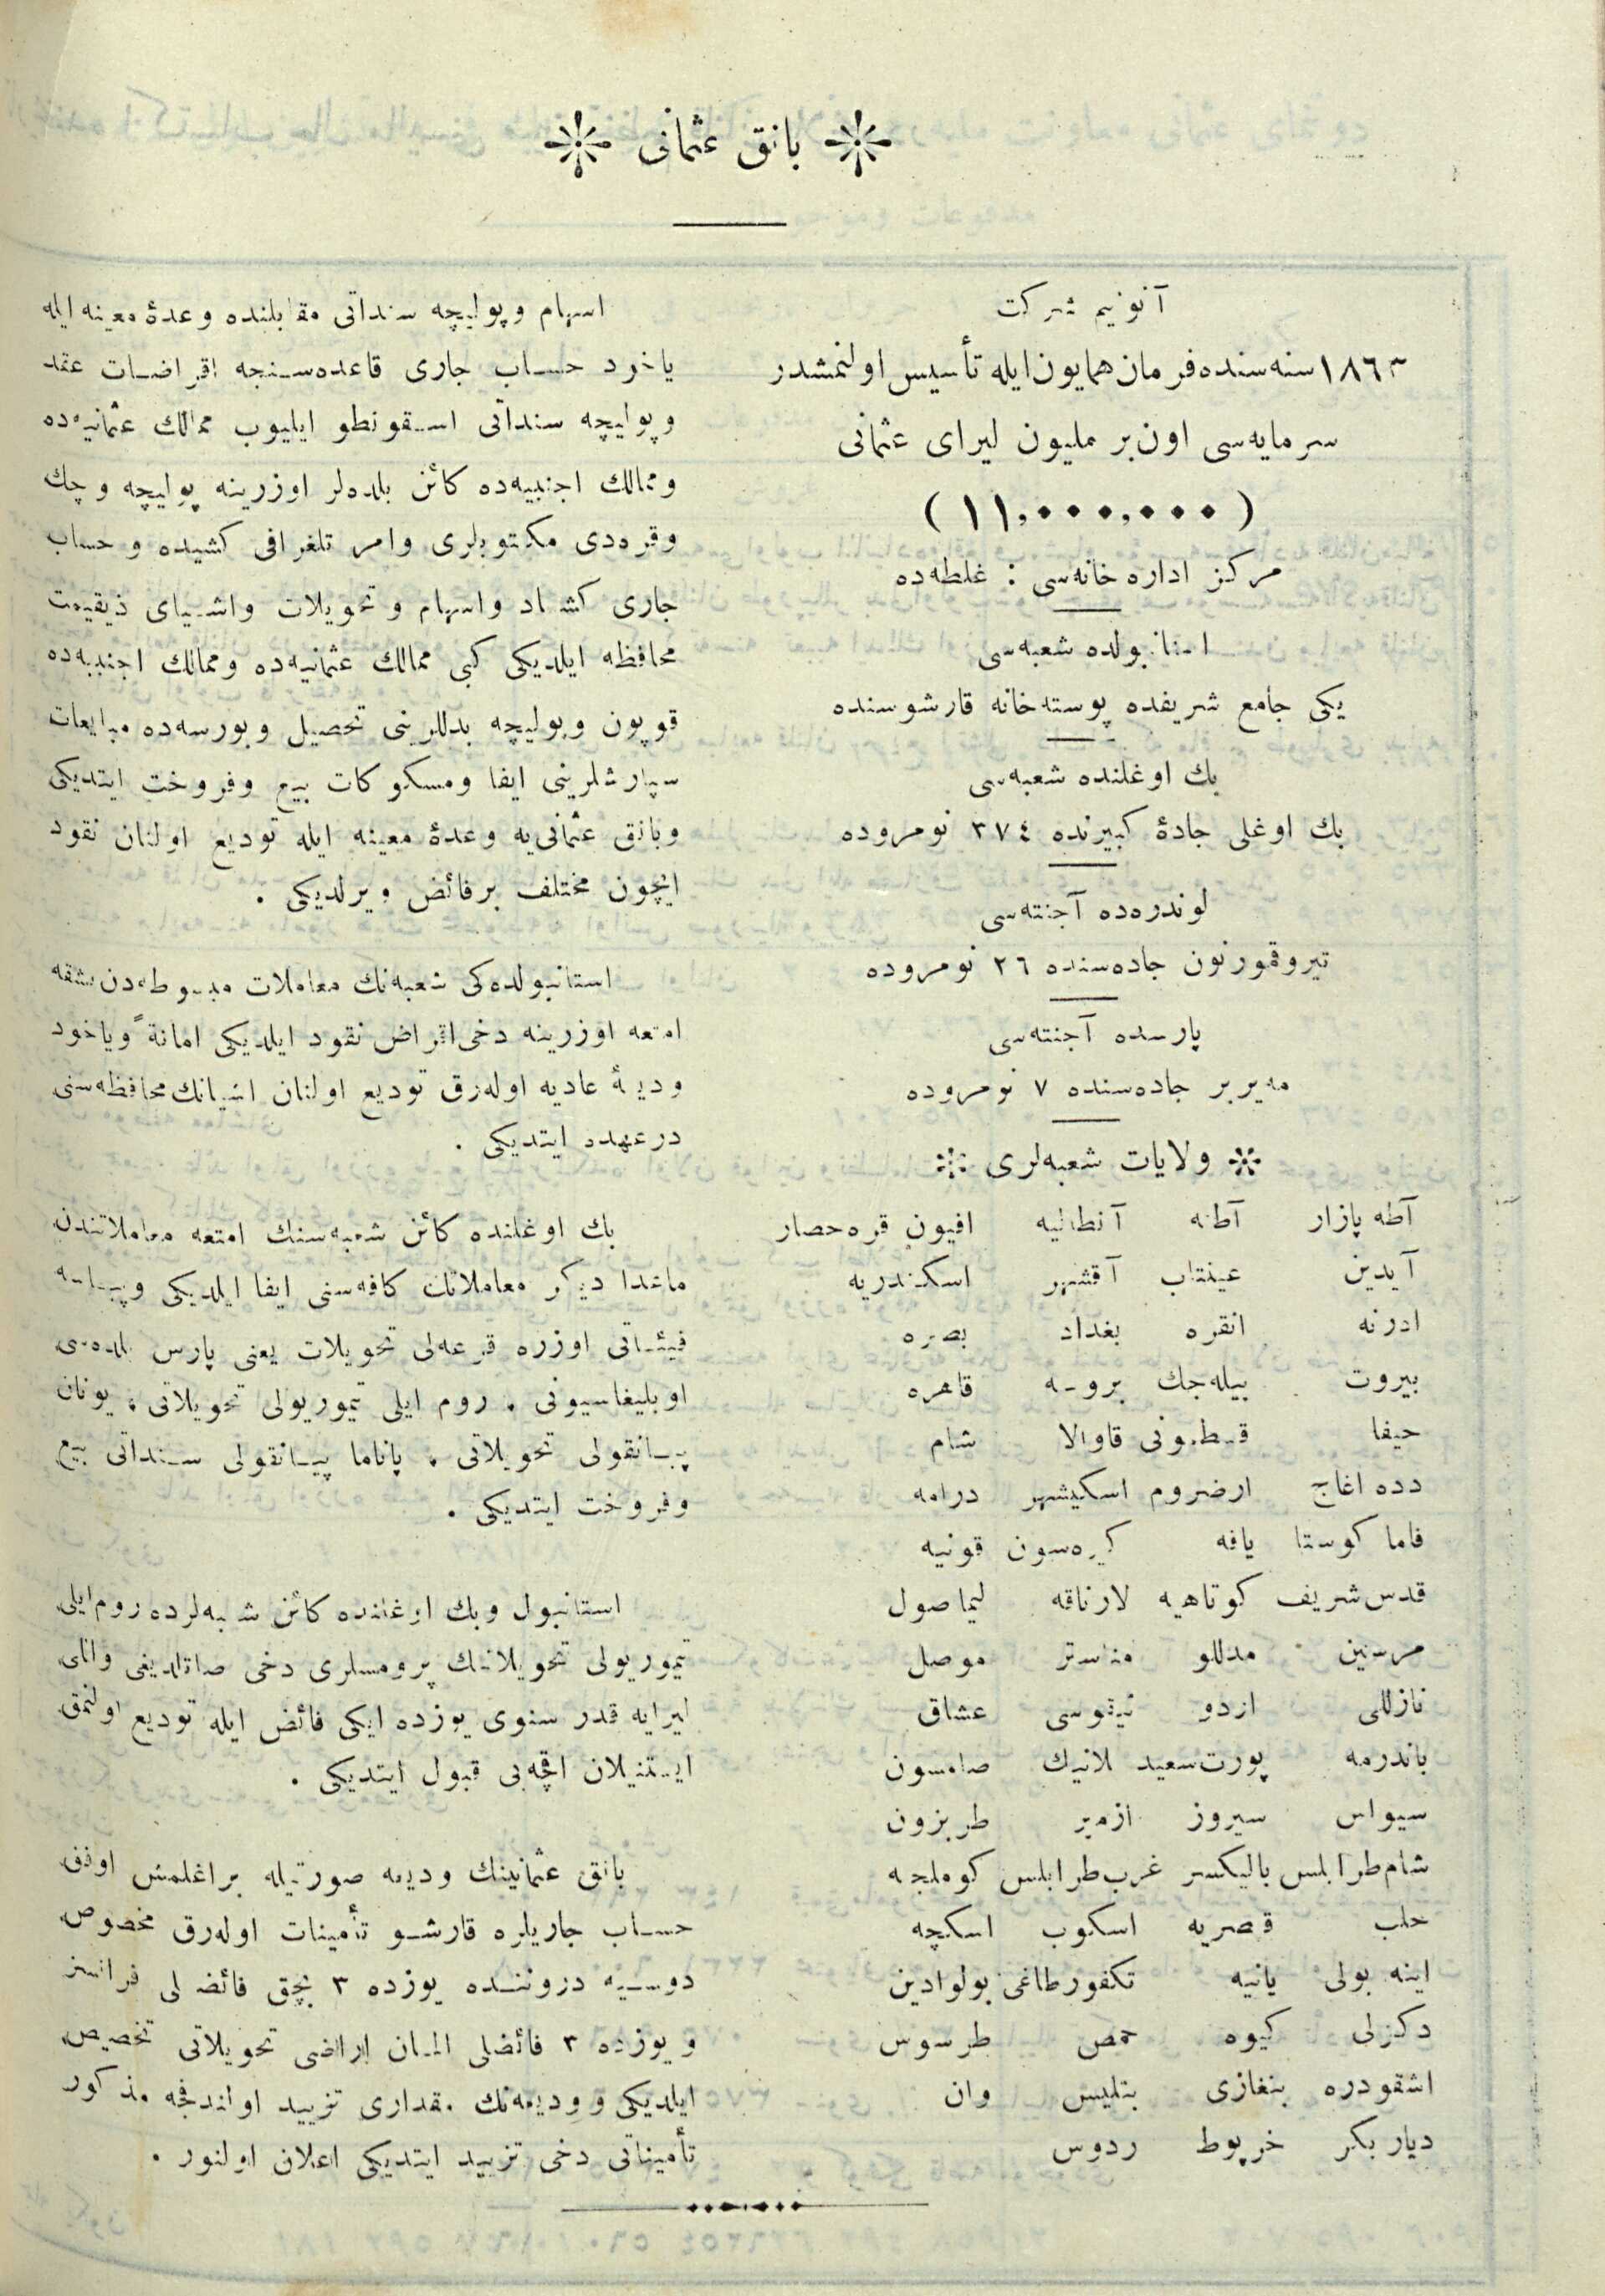 بانق عثمانی
آنونیم شركت
١٨٦٣ سنه سنده فرمان همایون ایله تأسیس اولنمشدر
سرمایه سی اون بر ملیون لیرای عثمانی
(١١,٠٠٠,٠٠٠)
مركز اداره خانه سی : غلطه ده
استانبولده شعبه سی
یكی جامع شریفده پوسته خانه قارشوسنده
بك اوغلنده شعبه سی
بك اوغلی جادهٔ كبیرنده ٣٧٤ نومروده
لوندره ده آجنته سی
تیروقمورنون جاده سنده ٢٦ نومروده
پارسده آجنته سی
مه یربر جاده سنده ٧ نومروده
ولایات شعبه لری
آطه پازار آطنه آنطالیه افیون قره حصار
آیدین عینتاب آقشهر اسكندریه
ادرنه انقره بغداد بصره
بیروت بیله جك بروسه قاهره
حیفا قسطمونی قاوالا شام
دده اغاج ارضروم اسكیشهر درامه
فاما كوستا یافه كیره سون قونیه
قدس شریف كوتاهیه لارناقه لیماصول
مرسین مدللو مناستر موصل
نازللی اردو نیقوسی عشاق
باندرمه پورت سعید سلانیك صامسون
سیواس سیروز ازمیر طربزون
شام طرابلس بالیكسر غرب طرابلس كوملجنه
حلب قصریه اسكوب اسكچه
اینه بولی یانیه تكفور طاغی بولوادین
دكزلی كیوه حمص طرسوس
اشقودره بنغازی بتلیس وان
دیار بكر خرپوط ردوس
اسهام و پولیچه سنداتی مقابلنده وعدهٔ معینه ایله
یاخود حساب جاری قاعده سنجه اقراضات عقد
و پولیچه سنداتی اسقونطو ایلیوب ممالك عثمانیه ده
وممالك اجنبیه ده كائن بلده لر اوزرینه پولیچه وچك
وقره دی مكتوبلری وامر تلغرافی كشیده وحساب
جاری كشاد واسهام وتحویلات واشیای ذیقیمت
محافظه ایلدیكی كبی ممالك عثمانیه ده وممالك اجنبیه ده
قوپون وپولیچه بدللرینی تحصیل وبورسه ده مبایعات
سپارشلرینی ایفا ومسكوكات بیع وفروخت ایتدیكی
وبانق عثمانی یه وعدهٔ معینه ایله تودیع اولنان نقود
ایچون مختلف بر فائض ویرلدیكی .
استانبولده كی شعبه نك معاملات مبسوطه دن بشقه
امتعه اوزرینه دخی اقراض نقود ایلدیكی امانةً ویاخود
ودیعهٔ عادیه اوله رق تودیع اولنان اشیانك محافظه سنی
درعهده ایتدیكی .
بك اوغلنده كائن شعبه سنك امتعه معاملاتندن
ماعدا دیكر معاملاتك كافه سنی ایفا ایلدیكی وپیاسه
فیئاتی اوزره قرعه لی تحویلات یعنی پارس بلده سی
اوبلیغاسیونی ، روم ایلی تیموریولی تحویلاتی ، یونان
پیانقولی تحویلاتی ، پاناما پیانقولی سنداتی بیع
وفروخت ایتدیكی .
استانبول وبك اوغلنده كائن شعبه لرده روم ایلی
تیموریولی تحویلاتنك پرومسلری دخی صاتلدیغی
لیرایه قدر سنوی یوزده ایكی فائض ایله تودیع اولنمق
ایستنیلان اقچه یی قبول ایتدیكی .
بانق عثمانینك ودیعه صورتیله براغلمش اوفق
حساب جاریلره قارشو تأمینات اوله رق مخصوص
دوسیه دروننده یوزده ٣ بچق فائضلی فرانسز
ویوزده ٣ فائضلی المان اراضی تحویلاتی تخصیص
ایلدیكی وودیعه نك مقداری تزیید اولندقجه مذكور
تأمیناتی دخی تزیید ایتدیكی اعلان اولنور .